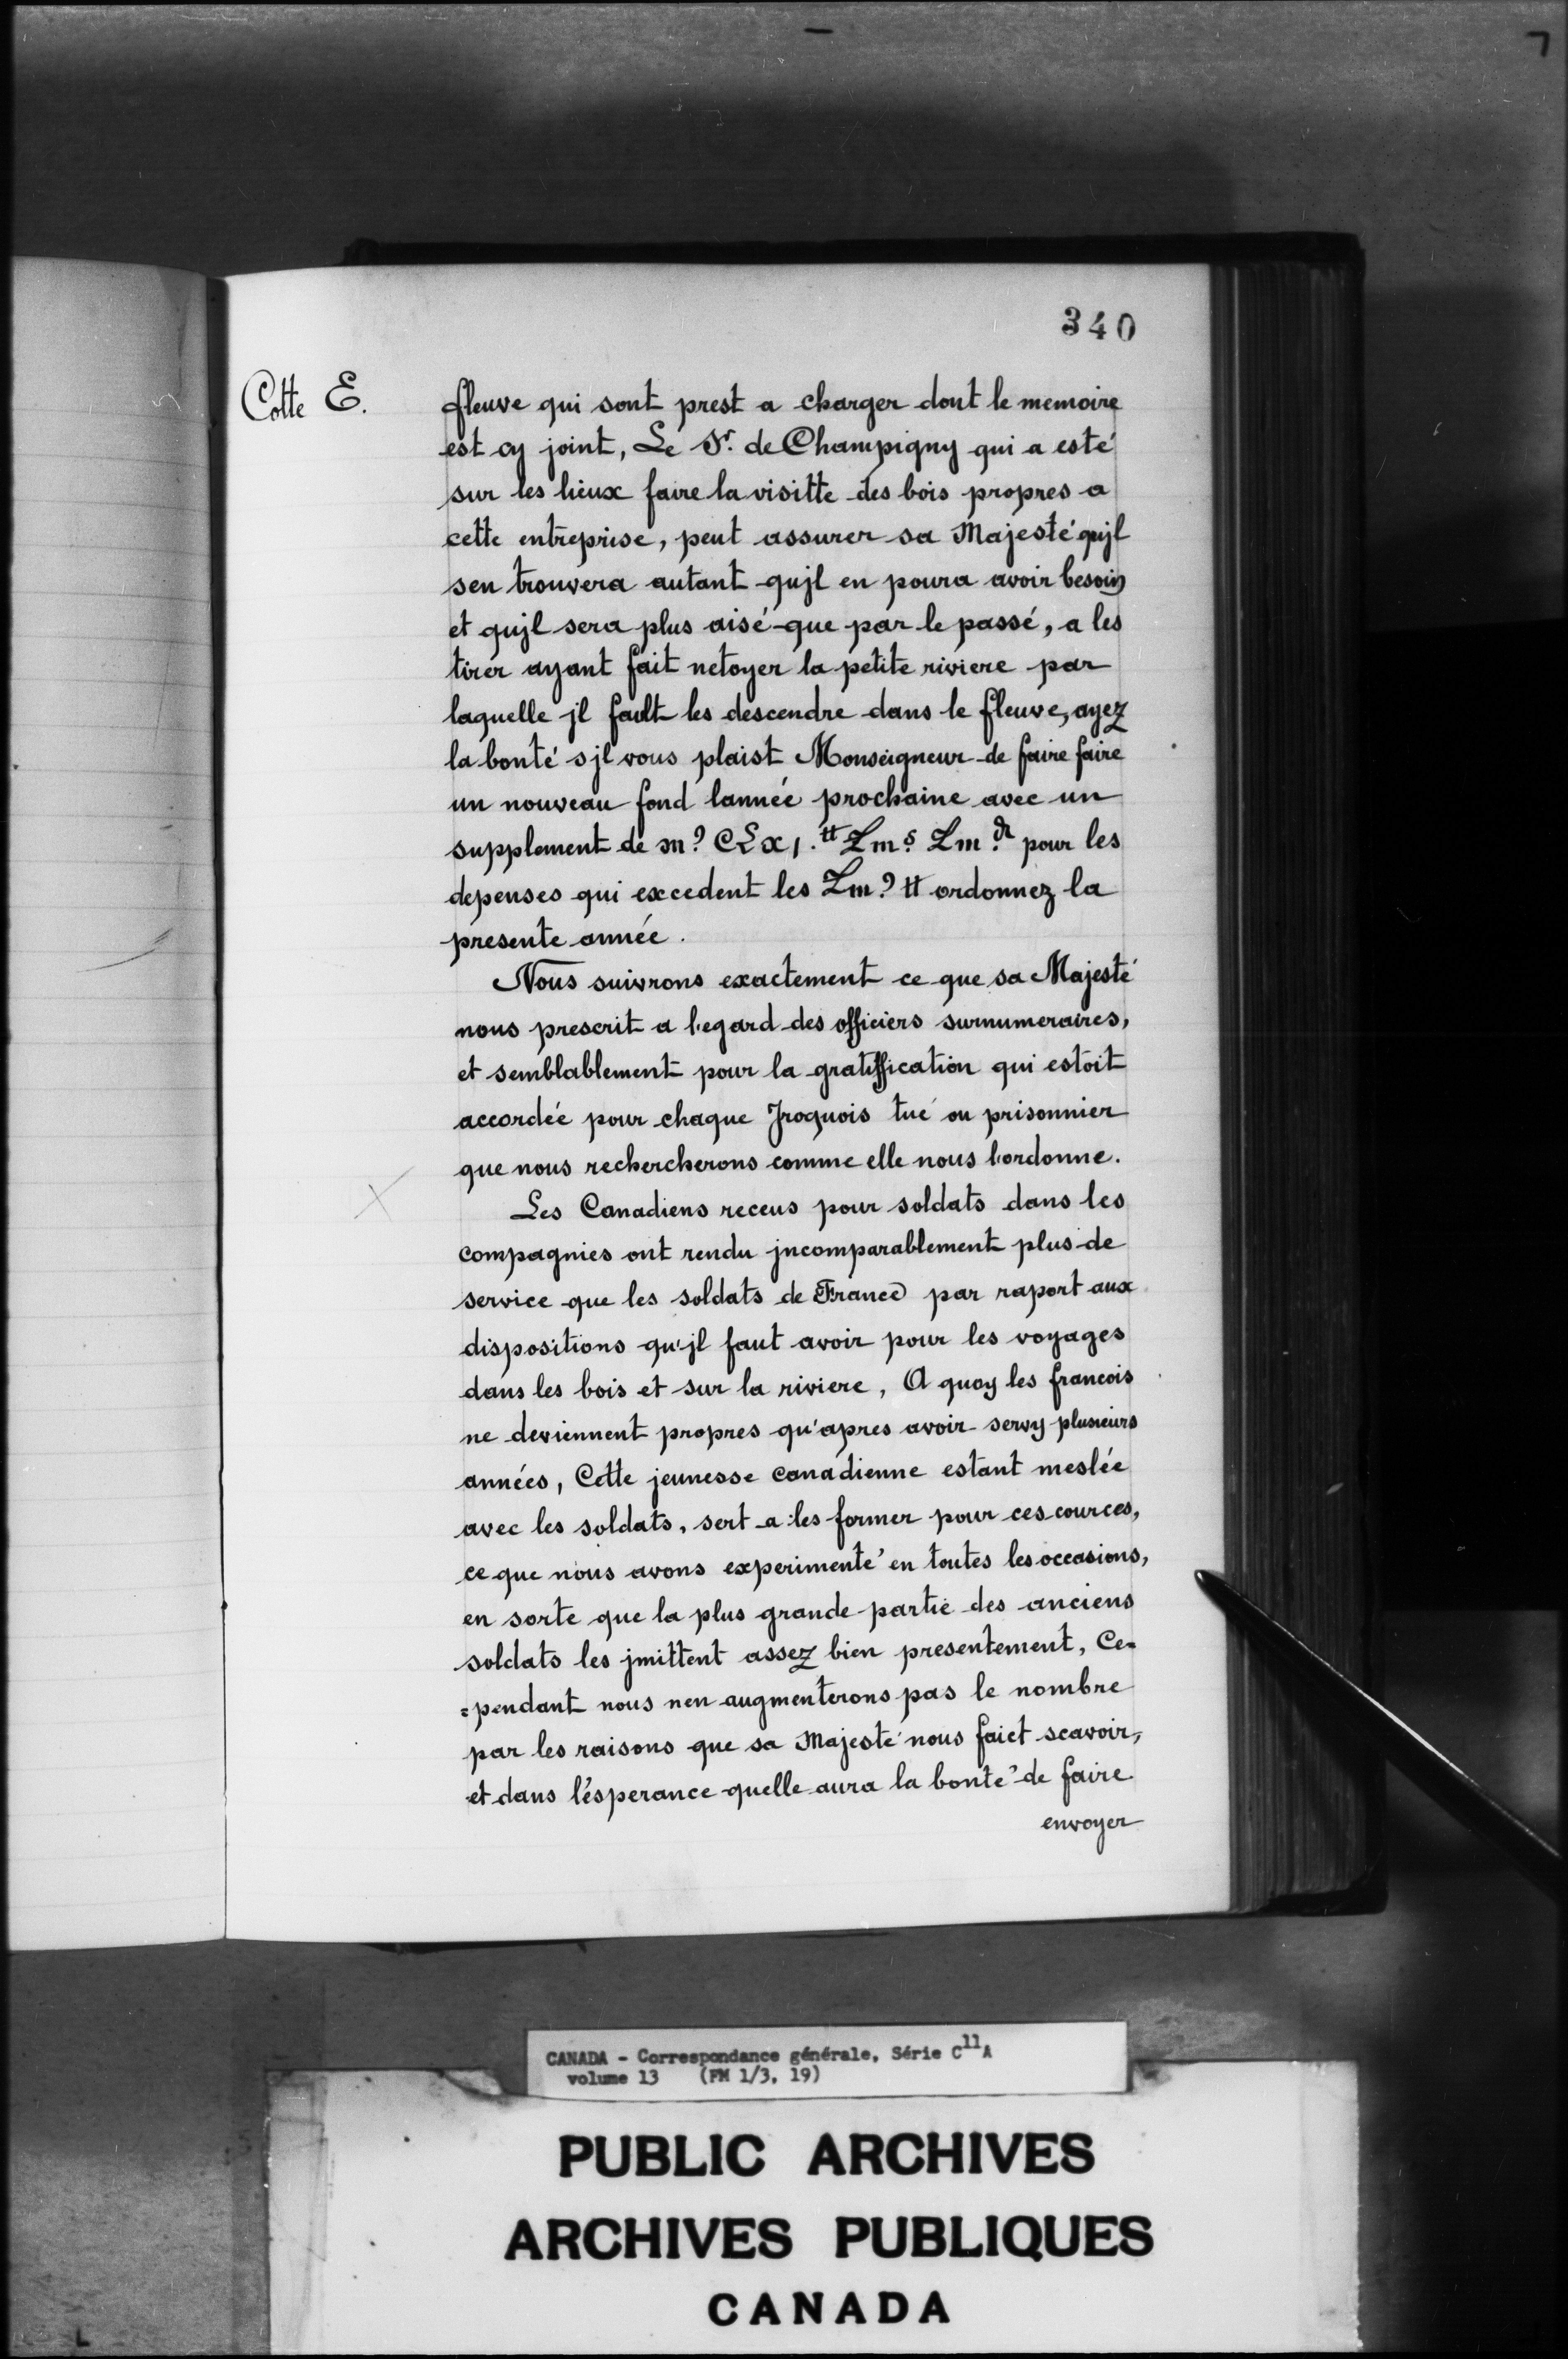 340
Cotte E.
fleuve qui sont prest a charger dont le memoire
est cy joint, Le Sr. de Champigny qui a esté
sur les lieux faire la visitte des bois propres a
cette entreprise, peut assurer sa Majesté qujl
sen trouvera autant qujl en poura avoir besoin
et qujl sera plus aisé que par le passé, a les
tirer ayant fait netoyer la petite riviere par
laquelle jl fault les descendre dans le fleuve, ayez
la bonté sjl vous plaist Monseigneur de faire faire
un nouveau fond lannée prochaine avec un
supplement de pour les
depenses qui excedent les ordonnez la
presente année.
Nous suivrons exactement ce que sa Majesté
nous prescrit a l'egard des officiers surnumeraires,
et semblablement pour la gratiffication qui estoit
accordée pour chaque Jroquois tué ou prisonnier
que nous rechercherons comme elle nous l'ordonne.
Les Canadiens receus pour soldats dans les
compagnies ont rendu jncomparablement plus de
service que les soldats de France par raport aux
dispositions qu'jl faut avoir pour les voyages
dans les bois et sur la riviere, A quoy les francois
ne deviennent propres qu'apres avoir servy plusieurs
années, Cette jeunesse canadienne estant meslée
avec les soldats, sert a les former pour ces cources,
ce que nous avons experimenté en toutes les occasions,
en sorte que la plus grande partie des anciens
soldats les jmittent assez bien presentement, Ce=
=pendant nous nen augmenterons pas le nombre
par les raisons que sa Majesté nous faict scavoir,
et dans l'esperance quelle aura la bonté de faire
envoyer
CANADA - Correspondance générale, Série C11A
volume 13 (FM 1/3, 19)
PUBLIC ARCHIVES
ARCHIVES PUBLIQUES
CANADA